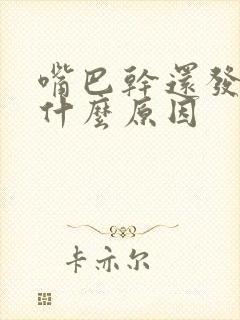 嘴巴幹還發
什麼原因
卡亦尔